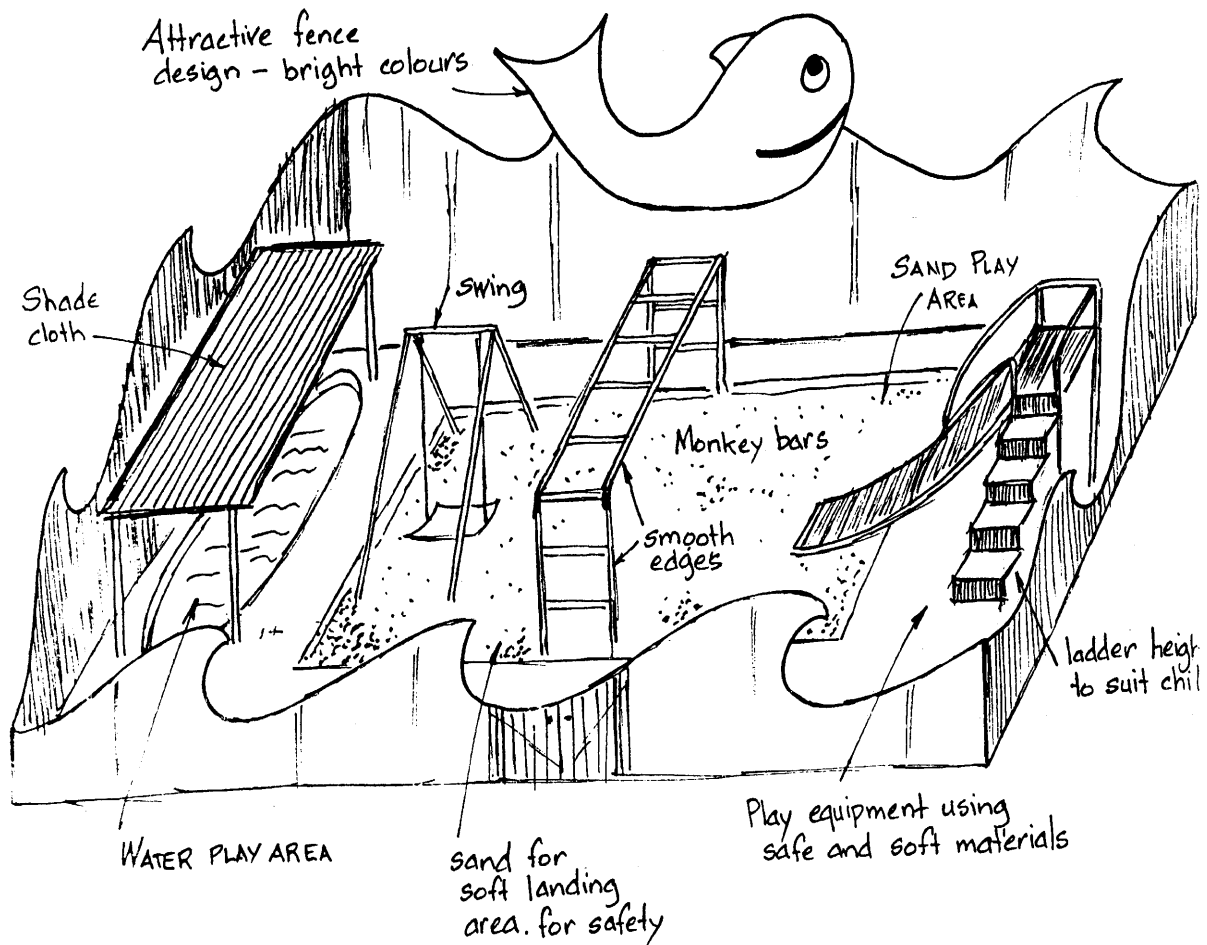 Attractive fence
design - bright colours
Shade
cloth
swing
SAND PLAY
AREA
Monkey bars
smooth
edges
ladder
to suit
WATER PLAY AREA
sand for
soft landing
area. for safety
Play equipment using
safe and soft materials